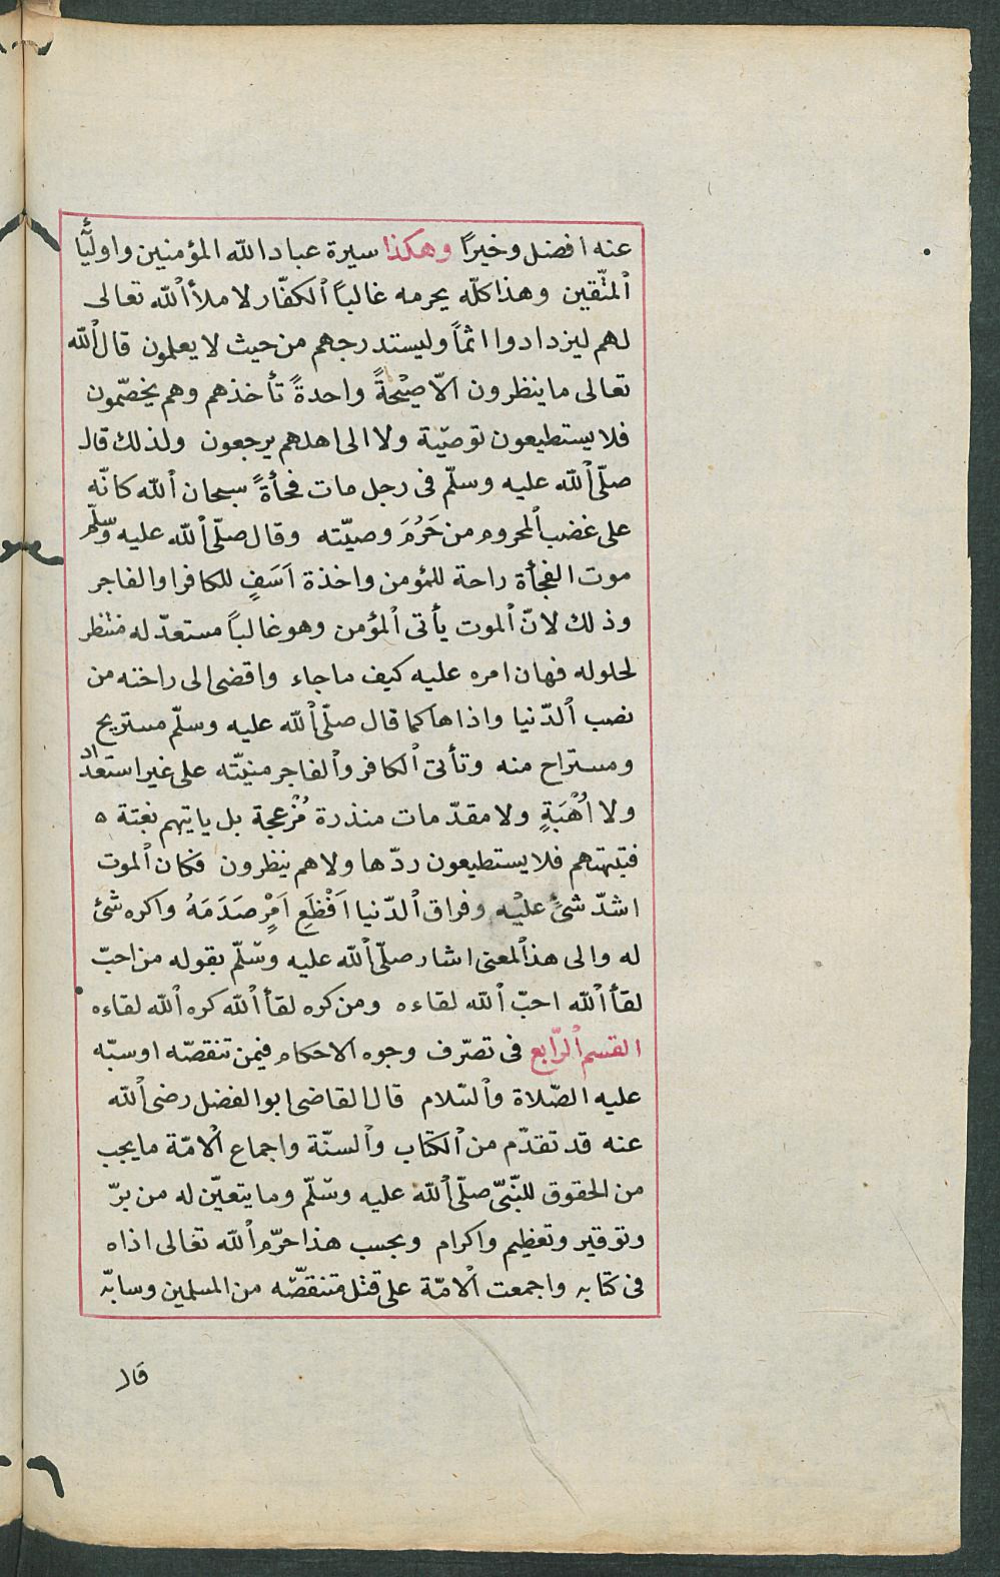 عنه افضل وخيرًا وهكذا سيرة عباد الله المؤمنين واوليًا
المتّقين وهذا كلّه يحرمه غالبًا الكفّار لا ملأ الله تعالى
لهم ليزدادوا اثمًا وليستدرجهم من حيث لا يعلمون قال الله
تعالى ما ينظرون الاّ صيْحةً واحدةً تأخذهم وهم يخصّمون
فلا يستطيعون توصيّة ولا الى اهلهم يرجعون ولذلك قال
صلّى الله عليه وسلّم فى رجل مات فجأةً سبحان الله كانّه
على غضب المحروم من حَرُمَ وصيّته وقال صلّى الله عليه وسلّم
موت الفجأة راحة للمؤمن واخذة اَسَفٍ للكافر او الفاجر
وذلك لانّ الموت يأتى المؤمن وهو غالبًا مستعدّ له منتظر
لحلوله فهان امره عليه كيف ما جاء واقضى الى راحته من
نصب الدّنيا واذاها كما قال صلّى الله عليه وسلّم مستريح
ومستراح منه وتأتى الكافر والفاجر منيّته على غير استعداد
ولا اُهْبَةٍ ولا مقدّمات منذرة مُزْعجة بل ياتيهم بغتة ه
فتبهتهم فلا يستطيعون ردّها ولا هم ينظرون فكان الموت
اشدّ شئٍ عليْه وفراق الدّنيا اَفْظَعِ اَمْرٍ صَدَمَهُ واكره شئ
له والى هذا المعنى اشار صلّى الله عليه وسّلّم بقوله من احبّ
لقأ الله احبّ الله لقاءه ومن كره لقأ الله كره الله لقاءه
القسم الرّابع فى تصرّف وجوه الاحكام فيمن تنقصّه او سبّه
عليه الصّلاة والسّلام قال القاضى ابو الفضل رضى الله
عنه قد تقدّم من الكتاب والسنّة واجماع الامّة ما يجب
من الحقوق للنّبىّ صلّى الله عليه وسّلّم وما يتعيّن له من برّ
وتوقير وتعظيم واكرام وبحسب هذا حرّم الله تعالى اذاه
فى كتابه واجمعت الامّة على قتْل متنقصّه من المسلمين وسابّه
قال